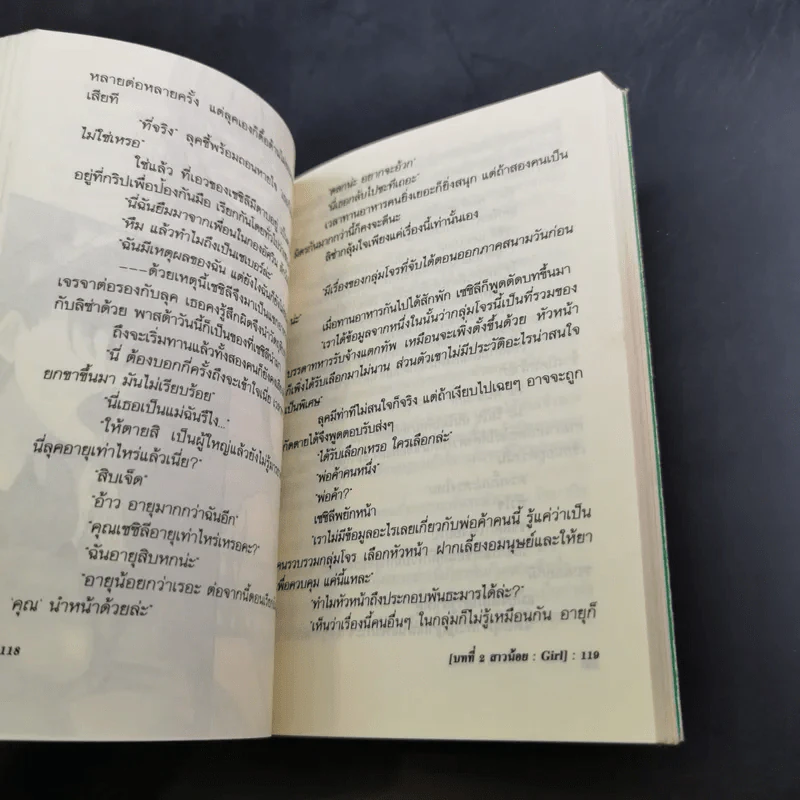 หลายต่อหลายครั้ง แต่ลุคเองก็ดื้อด้าน
เสียที
"ที่จริง" ลุคชี้พร้อมถอนหายใจ
ไม่ใช่เหรอ"
ใช่แล้ว ที่เอวของเซซิลีมีดาบอยู่
อยู่ที่กริปเพื่อป้องกันมือ เรียกกันโดยทั่วไป
"นี่ฉันยืมมาจากเพื่อนในกองอัศวิน
"หืม แล้วทำไมถึงเป็นเซเบอร์ล่ะ"
"ฉันมีเหตุผลของฉัน แต่ยังไงฉันก็
---ด้วยเหตุนี้เซซิลีจึงมาเป็นแขก
เจรจาต่อรองกับลุค เธอคงรู้สึกผิดจึงนำวัตถุดิบ
กับลิซ่าด้วย พาสต้าวันนี้ก็เป็นของที่เซซิลีนำมา
ถึงจะเริ่มทานแล้วทั้งสองคนก็ยังคง
"นี่ ต้องบอกกี่ครั้งถึงจะเข้าใจเนี่ย
ยกขาขึ้นมา มันไม่เรียบร้อย"
"นี่เธอเป็นแม่ฉันรึไง..."
"ให้ตายสิ เป็นผู้ใหญ่แล้วยังไม่รู้
นี่ลุคอายุเท่าไหร่แล้วเนี่ย?"
"สิบเจ็ด"
"อ้าว อายุมากกว่าฉันอีก"
"คุณเซซิลีอายุเท่าไหร่เหรอคะ?"
"ฉันอายุสิบหกน่ะ"
"อายุน้อยกว่าเรอะ ต่อจากนี้ตอนเรียก
'คุณ' นำหน้าด้วยล่ะ"
118
"ตลกน่ะ อยากจะอ้วก"
"นี่เธอกลับไปซะทีเถอะ"
เวลาทานอาหารคนยิ่งเยอะก็ยิ่งสนุก แต่ถ้าสองคนเป็น
มิตรกันมากกว่านี้ก็คงจะดีนะ
ลิซ่ากลุ้มใจเพียงแค่เรื่องนี้เท่านั้นเอง
"มีเรื่องของกลุ่มโจรที่จับได้ตอนออกภาคสนามวันก่อน
น่ะ"
เมื่อทานอาหารกันไปได้สักพัก เซซิลีก็พูดตัดบทขึ้นมา
"เราได้ข้อมูลจากหนึ่งในนั้นว่ากลุ่มโจรนี้เป็นที่รวมของ
บรรดาทหารรับจ้างแตกทัพ เหมือนจะเพิ่งตั้งขึ้นด้วย หัวหน้า
ก็เพิ่งได้รับเลือกมาไม่นาน ส่วนตัวเขาไม่มีประวัติอะไรน่าสนใจ
เป็นพิเศษ"
ลุคมีท่าทีไม่สนใจก็จริง แต่ถ้าเงียบไปเฉยๆ อาจจะถูก
กัดตายได้จึงพูดตอบรับส่งๆ
"ได้รับเลือกเหรอ ใครเลือกล่ะ"
"พ่อค้าคนหนึ่ง"
"พ่อค้า?"
เซซิลีพยักหน้า
"เราไม่มีข้อมูลอะไรเลยเกี่ยวกับพ่อค้าคนนี้ รู้แค่ว่าเป็น
คนรวบรวมกลุ่มโจร เลือกหัวหน้า ฝากเลี้ยงอมนุษย์และให้ยา
เพื่อควบคุม แค่นี้แหละ"
"ทำไมหัวหน้าถึงประกอบพันธะมารได้ล่ะ?"
"เห็นว่าเรื่องนี้คนอื่นๆ ในกลุ่มก็ไม่รู้เหมือนกัน อายุก็
[บทที่ 2 สาวน้อย : Girl] : 119